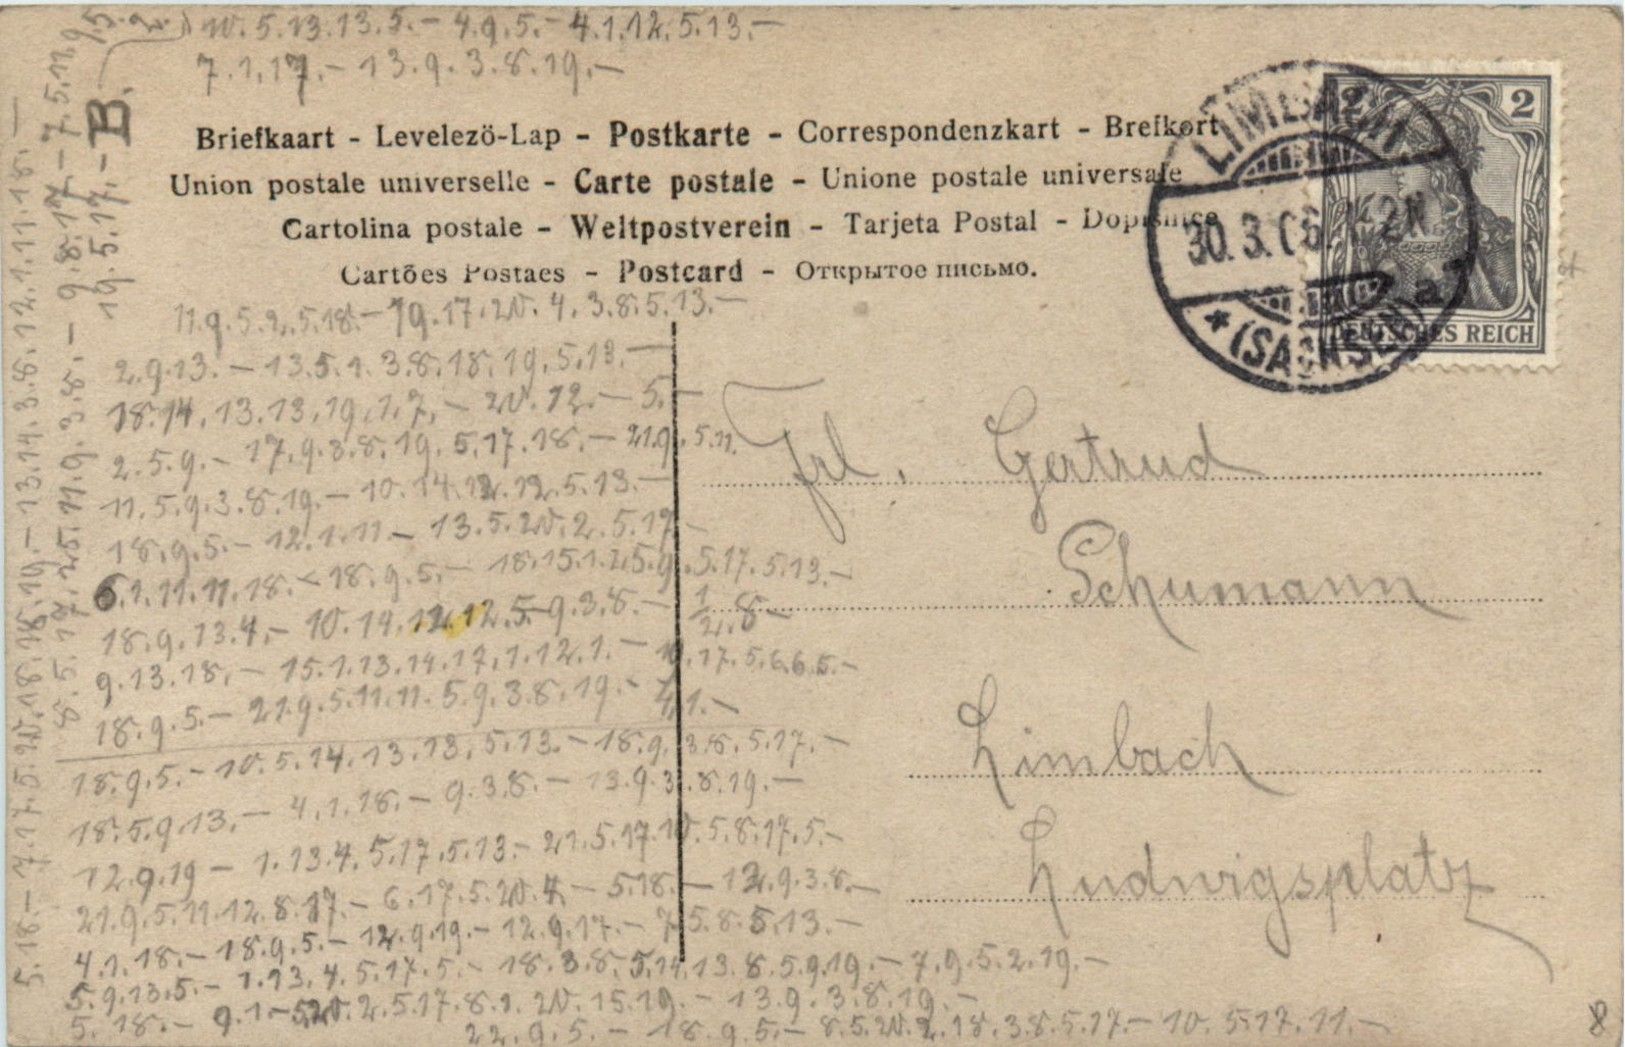 10.5.13.13.5.- 4.9.5.- 4.1.12.5.13.-
7.1.17.- 13.9.3.8.19.-
B.
Briefkaart - Levelezö-Lap - Postkarte - Correspondenzkart - Brefkort
Union postale universelle - Carte postale - Unione postale universale
Cartolina postale - Weltpostverein - Tarjeta Postal - Dopisnice
Cartões Postaes - Postcard - Открытое письмо.
LIMBACH
30.3.06.
* (SACHSEN)
2 2
DEUTSCHES REICH
11.9.5.2.5.18.- 19.17.20.4.3.8.5.13.-
2.9.13.- 13.5.1.3.8.18.19.5.13.-
18.14.13.13.19.1.7.- 20.12.- 5.-
2.5.9.- 17.9.3.8.19.5.17.18.- 21.9.5.11.
11.5.9.3.8.19.- 10.14.12.12.5.13.-
18.9.5.- 12.1.11.- 13.5.20.2.5.17.-
6.1.11.11.18.- 18.9.5.- 18.15.1.25.9.5.17.5.13.-
18.9.13.4.- 10.14.12.12.5.9.3.8.- 1/2.8-
9.13.18.- 15.1.13.14.17.1.12.1.- 19.17.5.6.6.5.-
18.9.5.- 21.9.5.11.11.5.9.3.8.19.- 4.1.-
18.9.5.- 10.5.14.13.13.5.13.- 18.9.3.8.5.17.-
18.5.9.13.- 4.1.18.- 9.3.8.- 13.9.3.8.19.-
12.9.19- 1.13.4.5.17.5.13.- 21.5.17.10.5.8.17.5.-
21.9.5.11.12.8.17.- 6.17.5.20.4.- 5.18.- 12.9.3.8.-
4.1.18.- 18.9.5.- 12.9.19.- 12.9.17.- 7.5.8.5.13.-
5.9.13.5.- 1.13.4.5.17.5.- 18.3.8.5.14.13.8.5.9.19.- 7.9.5.2.19.-
5.18.- 9.1.-5.20.2.5.17.8.1.20.15.19.- 13.9.3.8.19.-
22.9.5.- 18.9.5.- 8.5.20.2.18.3.8.5.17.- 10.5.17.11.-
Frl. Gertrud
Schumann
Limbach
Ludwigsplatz
5.18.- 7.17.5.20.18.18.19.- 13.14.3.8.12.1.11.18.-
8.5.17.25.11.9.3.8.- 9.8.17.- 7.5.11.9.
19.5.17.-
8